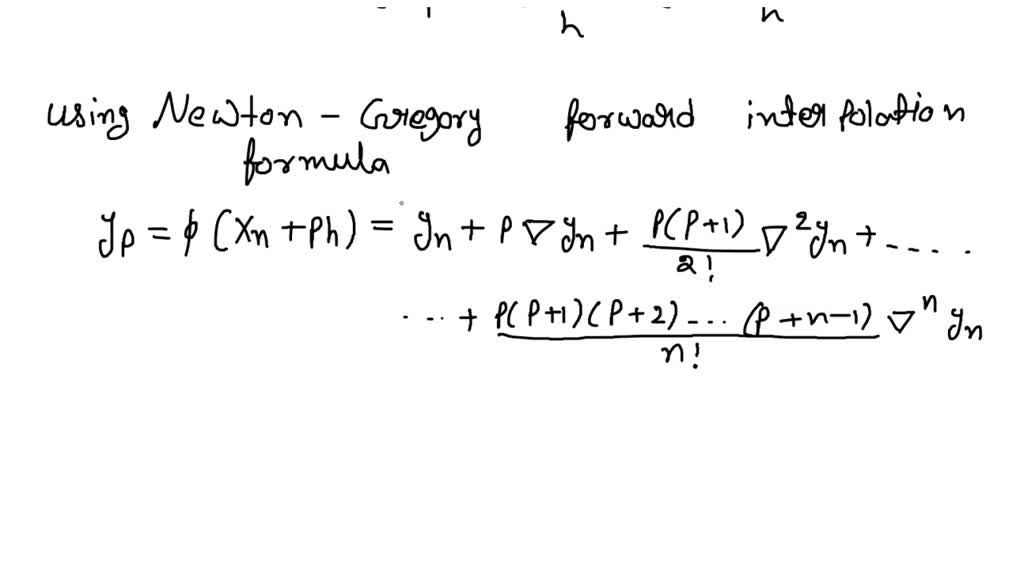 h n
using Newton - Gregory forward interpolation
formula
yp = φ (Xn + Ph) = yn + P ∇ yn + P(P+1)/2! ∇²yn + - . . . .
. - - + P(P+1)(P+2) - - . . (P+n-1)/n! ∇ⁿ yn